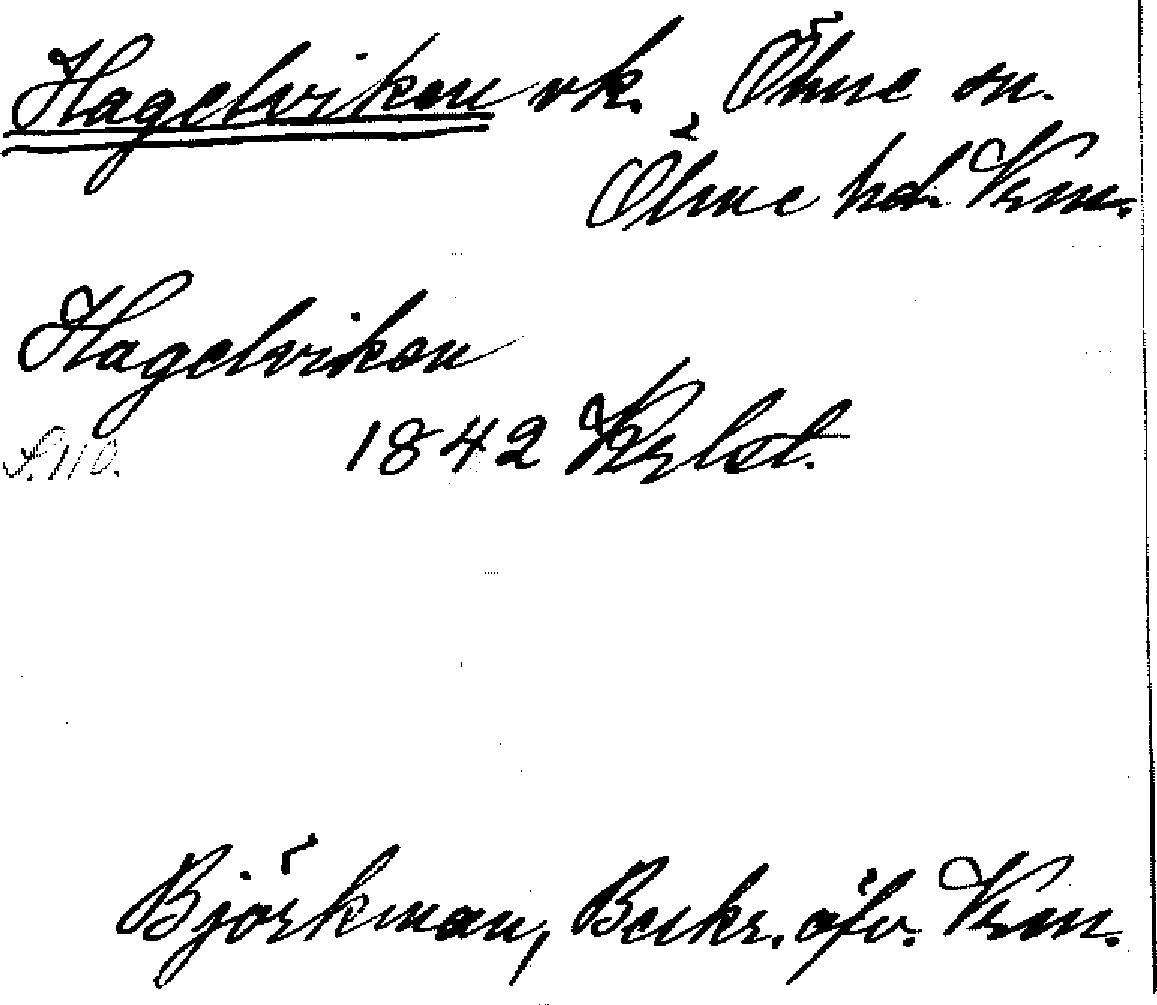 Hagelviken vk. Ölme sn.
Ölme hd. Vrm.
Hagelviken
S. 110. 1842
Björkman, Beskr. öfv. Vrm.